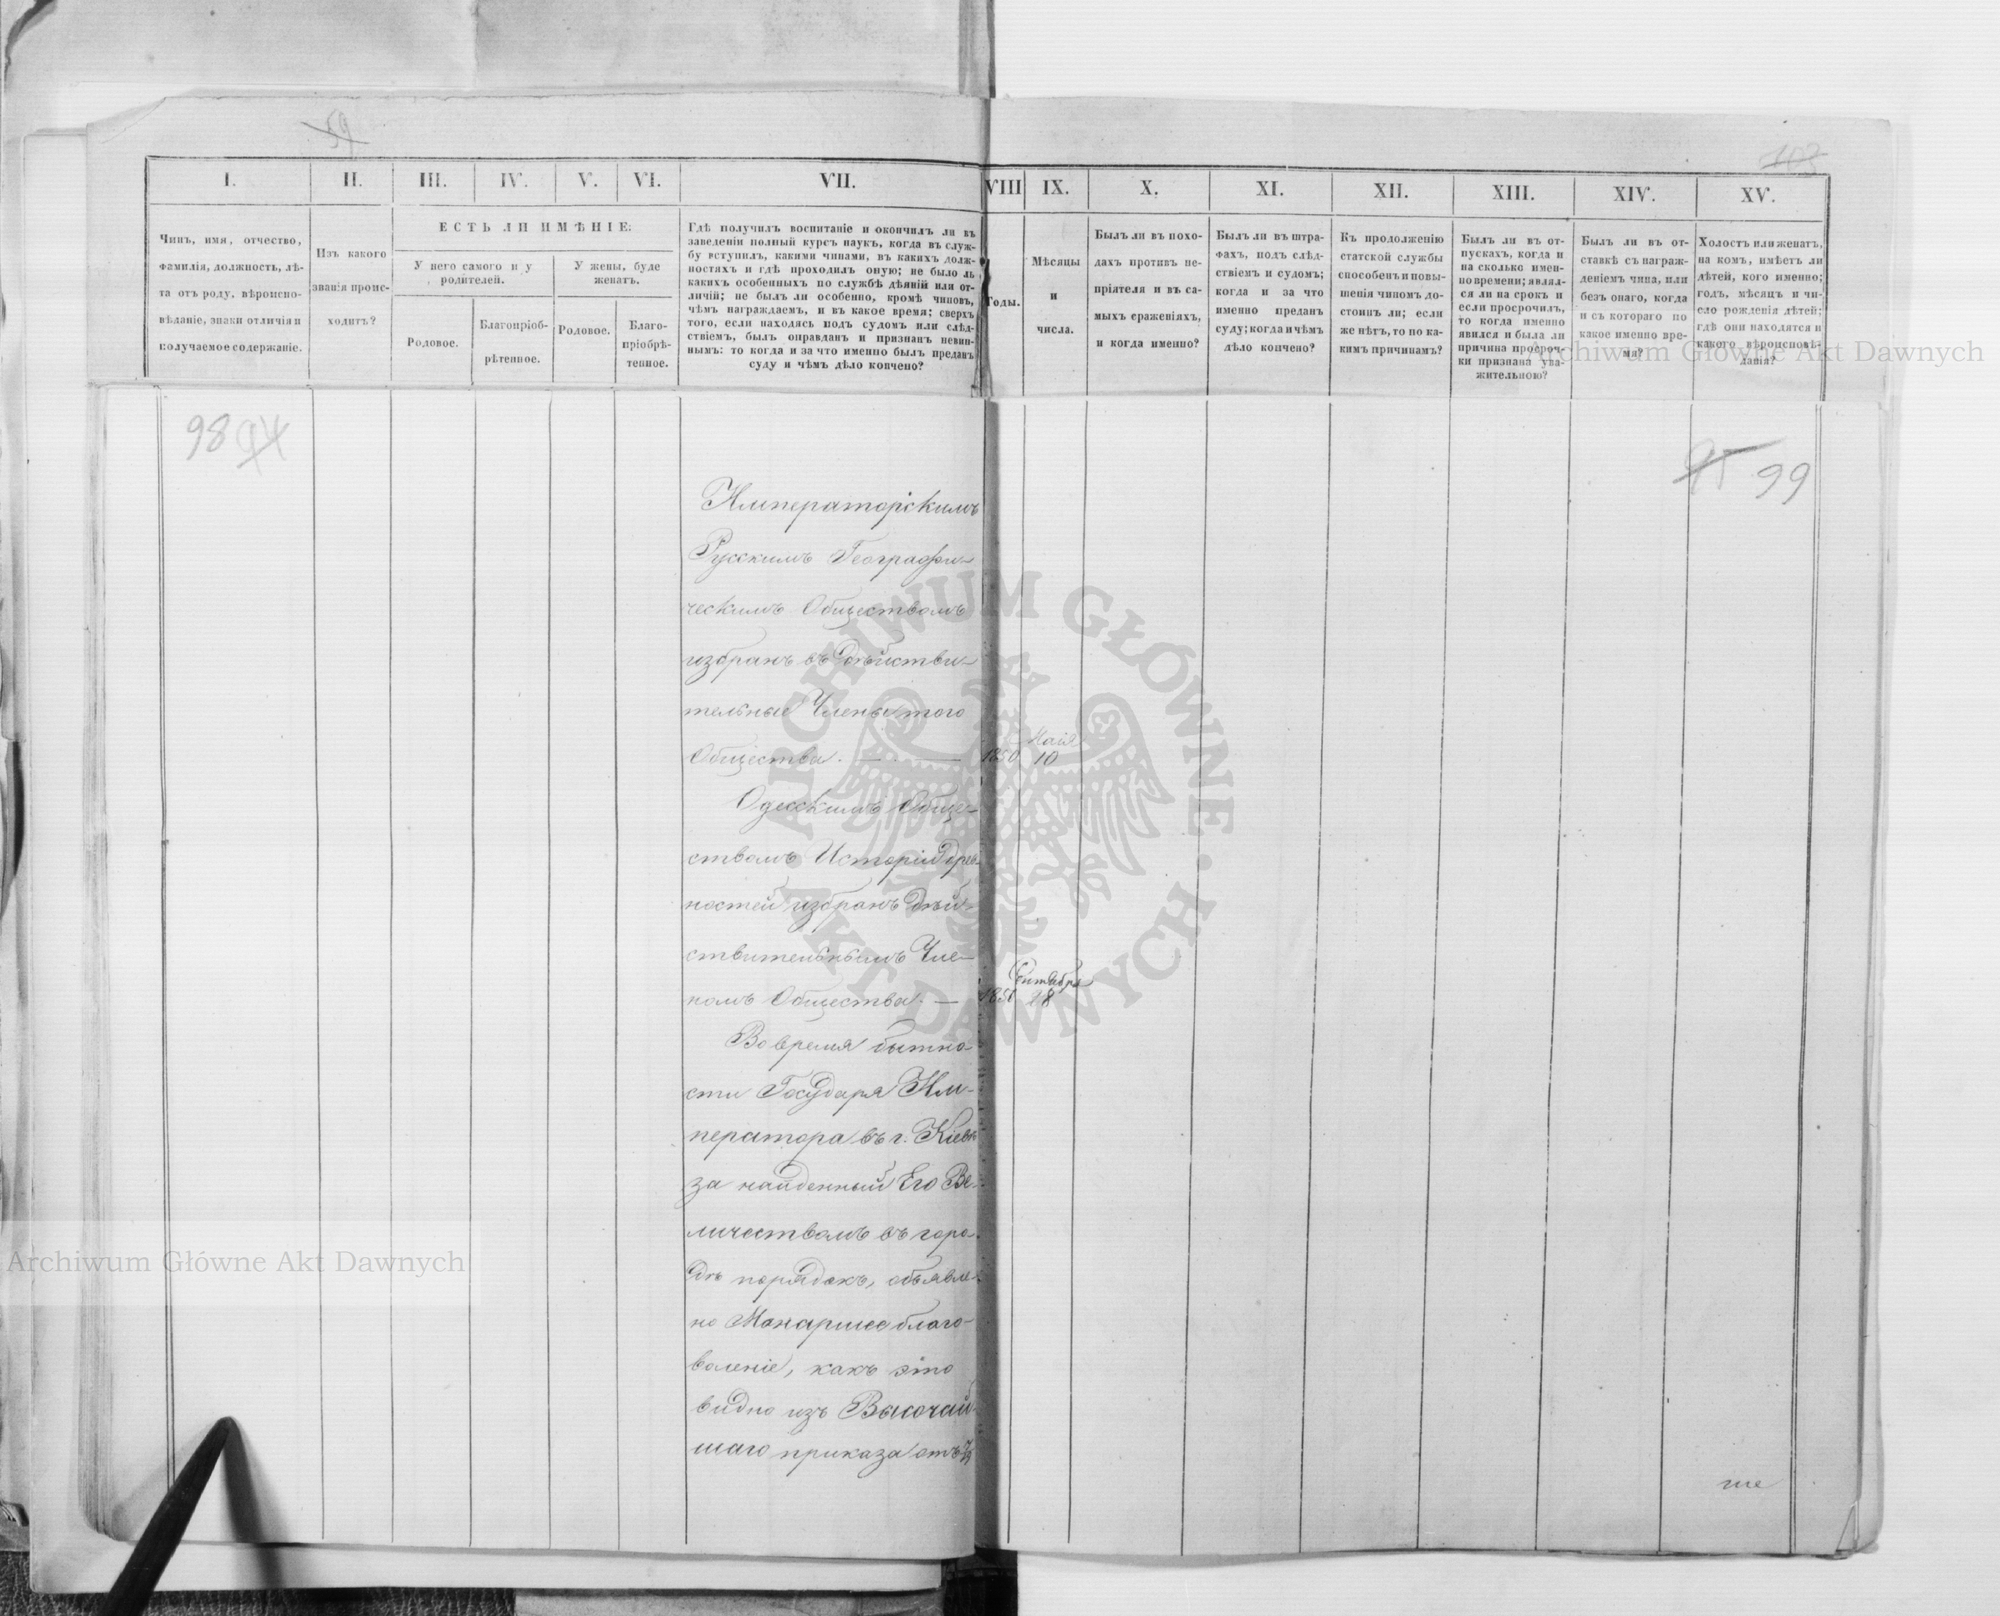 59
103
I. II. III. IV. V. VI. VII. VIII IX. X. XI. XII. XIII. XIV. XV.
Чинъ, имя, отчество,
фамилія, должность, лѣ-
та отъ роду, вѣроиспо-
вѣданіе, знаки отличія и
получаемое содержаніе.
Изъ какого
званія проис-
ходитъ?
ЕСТЬ ЛИ ИМѢНІЕ:
У него самого и у
родителей.
У жены, буде
женатъ.
Родовое.
Благопріоб-
рѣтенное.
Родовое.
Благо-
пріобрѣ-
тенное.
Гдѣ получилъ воспитаніе и окончилъ ли въ
заведеніи полный курсъ наукъ, когда въ служ-
бу вступилъ, какими чинами, въ какихъ долж-
ностяхъ и гдѣ проходилъ оную; не было ль
какихъ особенныхъ по службѣ дѣяній или от-
личій; не былъ ли особенно, кромѣ чиновъ,
чѣмъ награждаемъ, и въ какое время; сверхъ
того, если находясь подъ судомъ или слѣд-
ствіемъ, былъ оправданъ и признанъ невин-
нымъ: то когда и за что именно былъ преданъ
суду и чѣмъ дѣло кончено?
Годы.
Мѣсяцы
и
числа.
Былъ ли въ похо-
дахъ противъ не-
пріятеля и въ са-
мыхъ сраженіяхъ,
и когда именно?
Былъ ли въ штра-
фахъ, подъ слѣд-
ствіемъ и судомъ;
когда и за что
именно преданъ
суду; когда и чѣмъ
дѣло кончено?
Къ продолженію
статской службы
способенъ и повы-
шенія чиномъ до-
стоинъ ли; если
же нѣтъ, то по ка-
кимъ причинамъ?
Былъ ли въ от-
пускахъ, когда и
на сколько имен-
но времени; являл-
ся ли на срокъ и
если просрочилъ,
то когда именно
явился и была ли
причина просроч-
ки признана ува-
жительною?
Былъ ли въ от-
ставкѣ съ награж-
деніемъ чина, или
безъ онаго, когда
и съ котораго по
какое именно вре-
мя?
Холостъ или женатъ,
на комъ, имѣетъ ли
дѣтей, кого именно;
годъ, мѣсяцъ и чи-
сло рожденія дѣтей;
гдѣ они находятся и
какого вѣроисповѣ-
данія?
Archiwum Główne Akt Dawnych
98 94
95 99
Императорскимъ
Русскимъ Географи-
ческимъ Обществомъ
избранъ въ Дѣйстви-
тельные Члены того
Общества. 1850 Маія 10
Одесскимъ Обще-
ствомъ Исторіи Древ-
ностей избранъ Дѣй-
ствительнымъ Чле-
номъ Общества. 1850 Сентября 28
Во время бытно-
сти Государя Им-
ператора въ г. Кіевѣ
за найденный Его Ве-
личествомъ въ горо-
дѣ порядокъ, объявле-
но Монаршее благо-
воленіе, какъ это
видно изъ Высочай-
шаго приказа отъ
ше
ARCHIWUM GŁÓWNE AKT DAWNYCH
Archiwum Główne Akt Dawnych